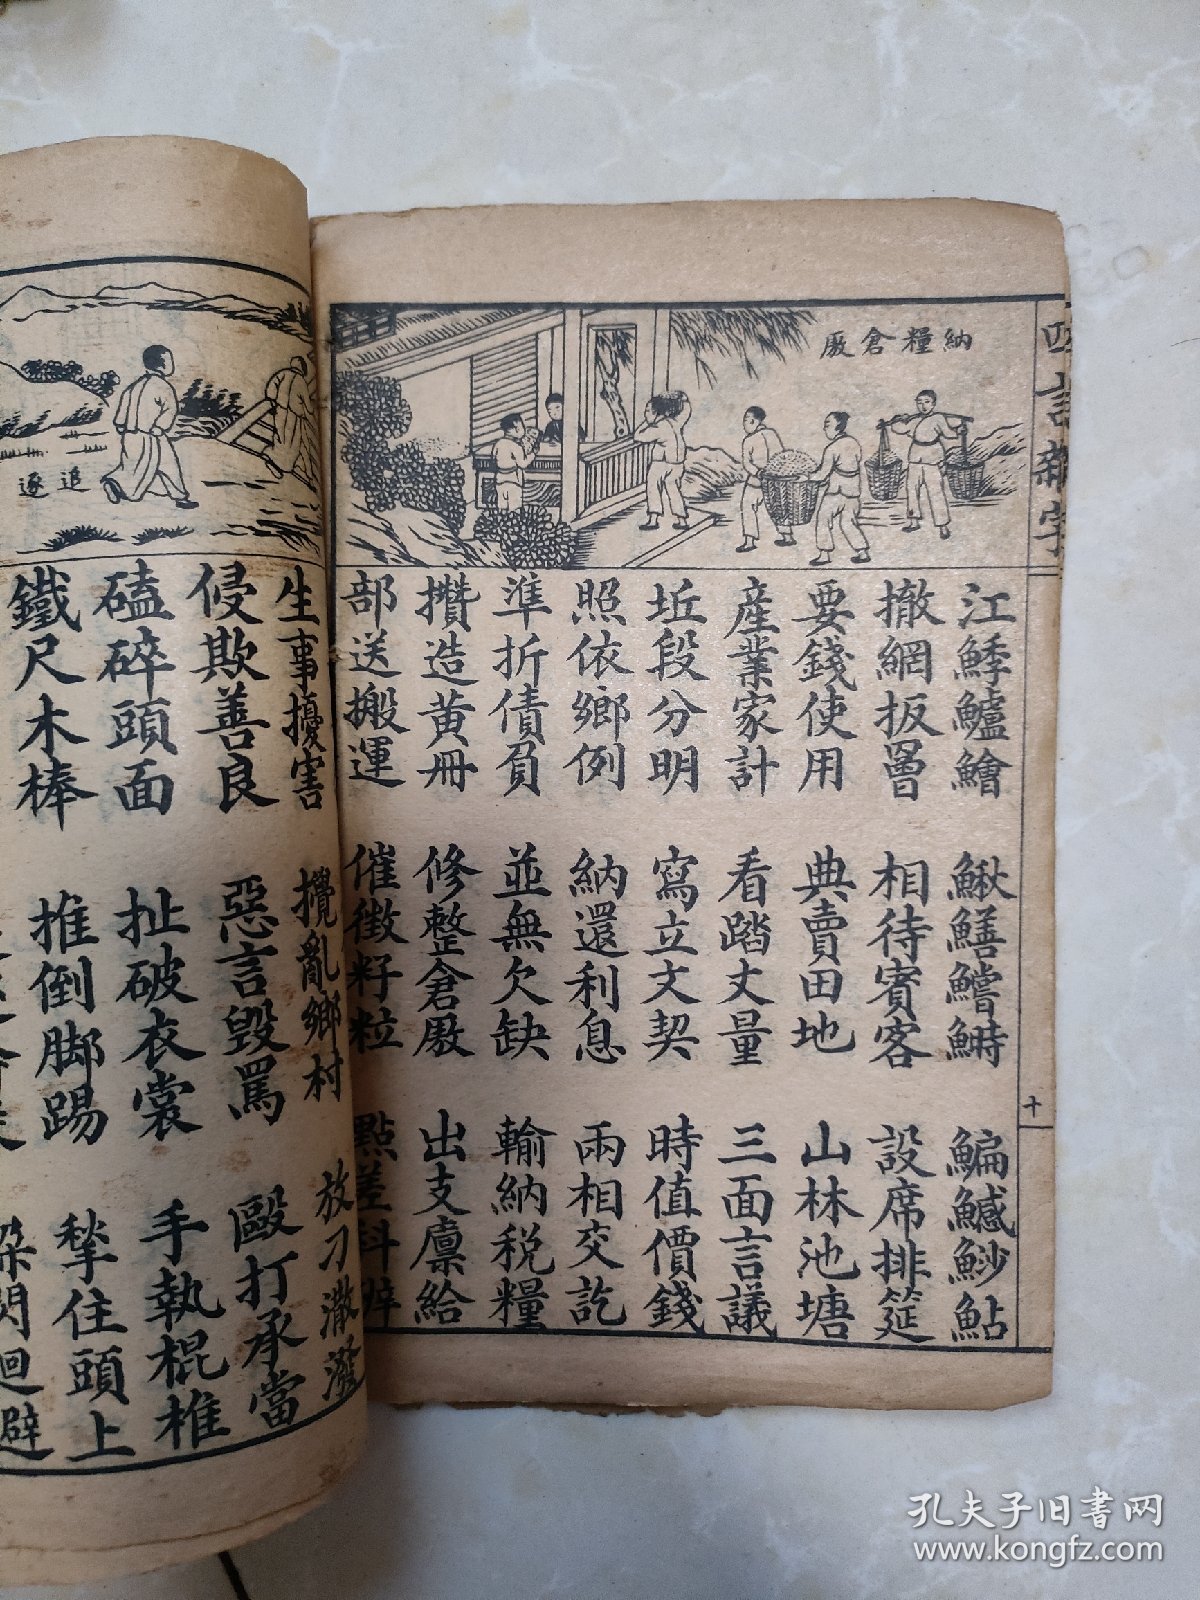 四言雜字
十
納糧倉廒
江鯚鱸鱠 鰍鱔鱨鰣 鯿鱤魦鮎
撤網扳罾 相待賓客 設席排筵
要錢使用 典賣田地 山林池塘
產業家計 看踏丈量 三面言議
坵段分明 寫立文契 時值價錢
照依鄉例 納還利息 兩相交訖
準折債負 並無欠缺 輸納稅糧
攢造黃冊 修整倉廒 出支廩給
部送搬運 催徵籽粒 點差科辦
追逐
生事擾害 攪亂鄉村 放刁潑潑
侵欺善良 惡言毀罵 毆打承當
磕碎頭面 扯破衣裳 手執棍椎
鐵尺木棒 推倒脚踢 揫住頭上
躲閃迴避
孔夫子旧书网
www.kongfz.com